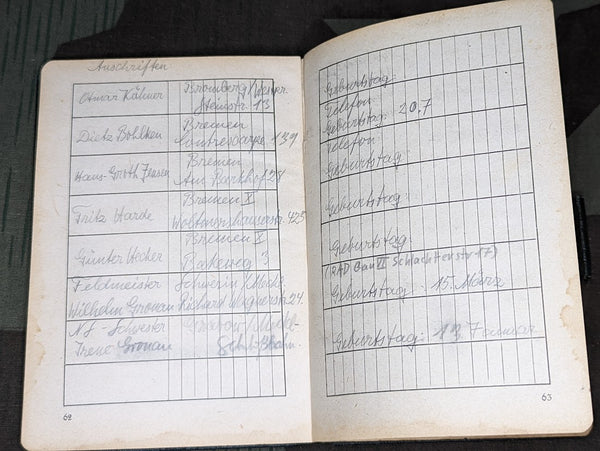 Anschriften
Otmar Kähner
Bromberg/Weser
Steinstr. 13
Dietz Bohlken
Bremen
Contrescarpe 139
Hans-Groth Jensen
Bremen
Am Barkhof 28
Fritz Harde
Bremen X
Woltmershauserstr. 425
Günter Hecher
Bremen X
Bakeweg 3
Feldmeister
Schwerin/Meckl.
Wilhelm Gronau
Richard Wagnerstr. 24.
NS-Schwester
Grabow/Meckl-
Irene Gronau
62
Geburtstag:
Telefon
Geburtstag: 20.7
Telefon:
Geburtstag:
Geburtstag:
Geburtstag:
(RAD Gau VI Schlachterstr. 17)
Geburtstag: 15. März
Geburtstag: 13. Januar
63